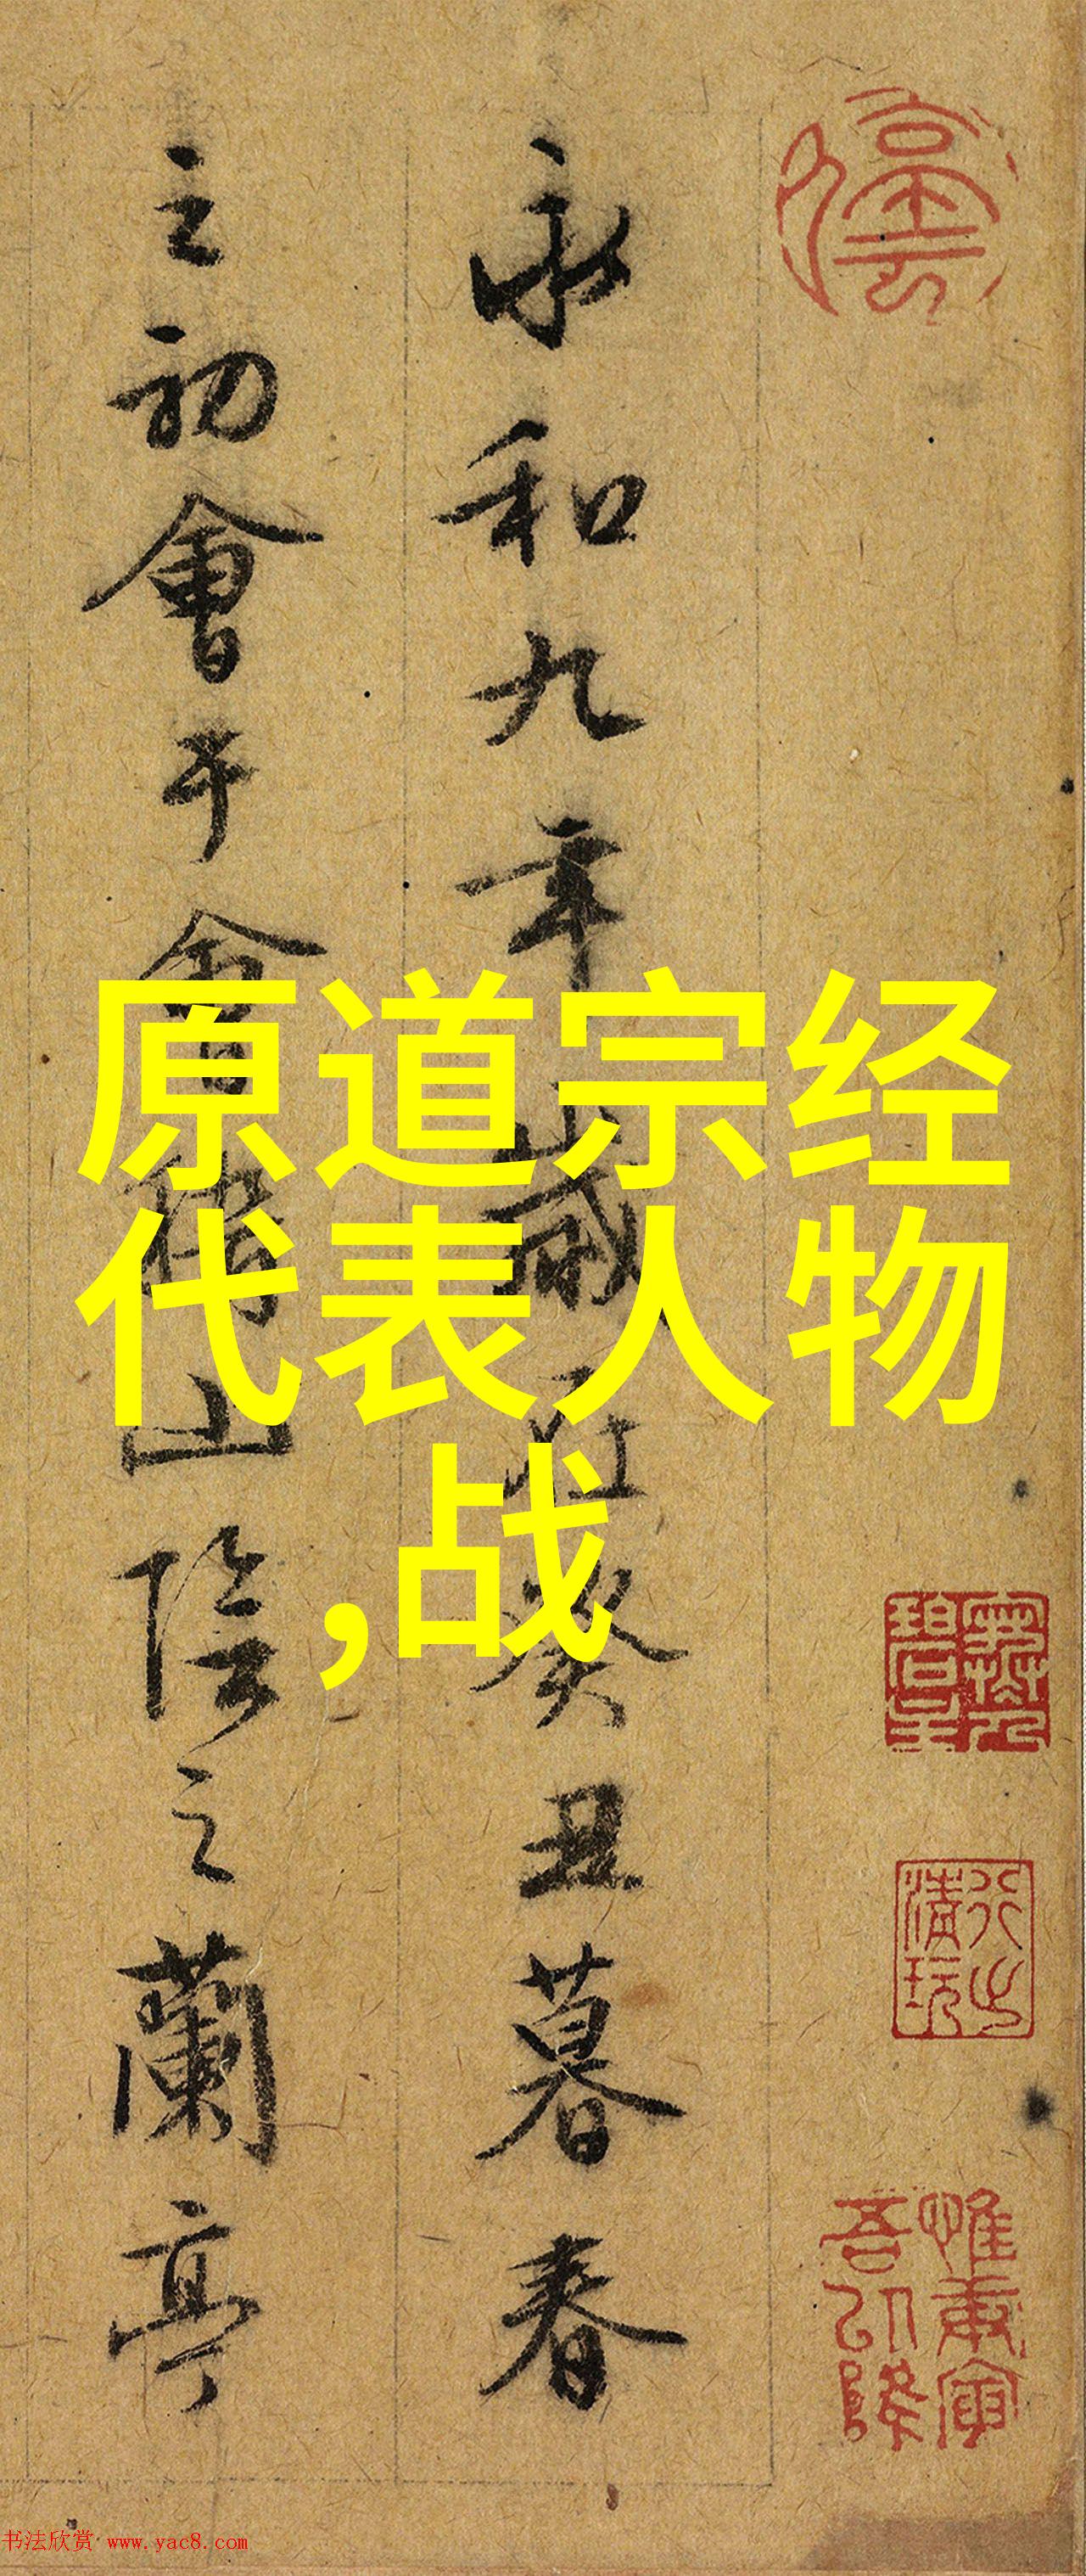 永和九年歲在癸丑暮春
之初會于會稽山陰之蘭亭
原道宗经
代表人物
,战
清玩
书法欣赏 www.yac8.com